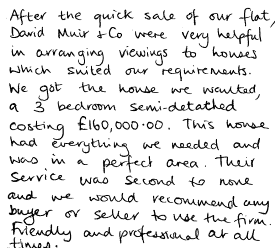 After the quick sale of our flat,
David Muir & Co were very helpful
in arranging viewings to houses
which suited our requirements.
We got the house we wanted,
a 3 bedroom semi-detatched
costing £160,000.00. This house
had everything we needed and
was in a perfect area. Their
service was second to none
and we would recommend any
buyer or seller to use the firm
friendly and professional at all
times.